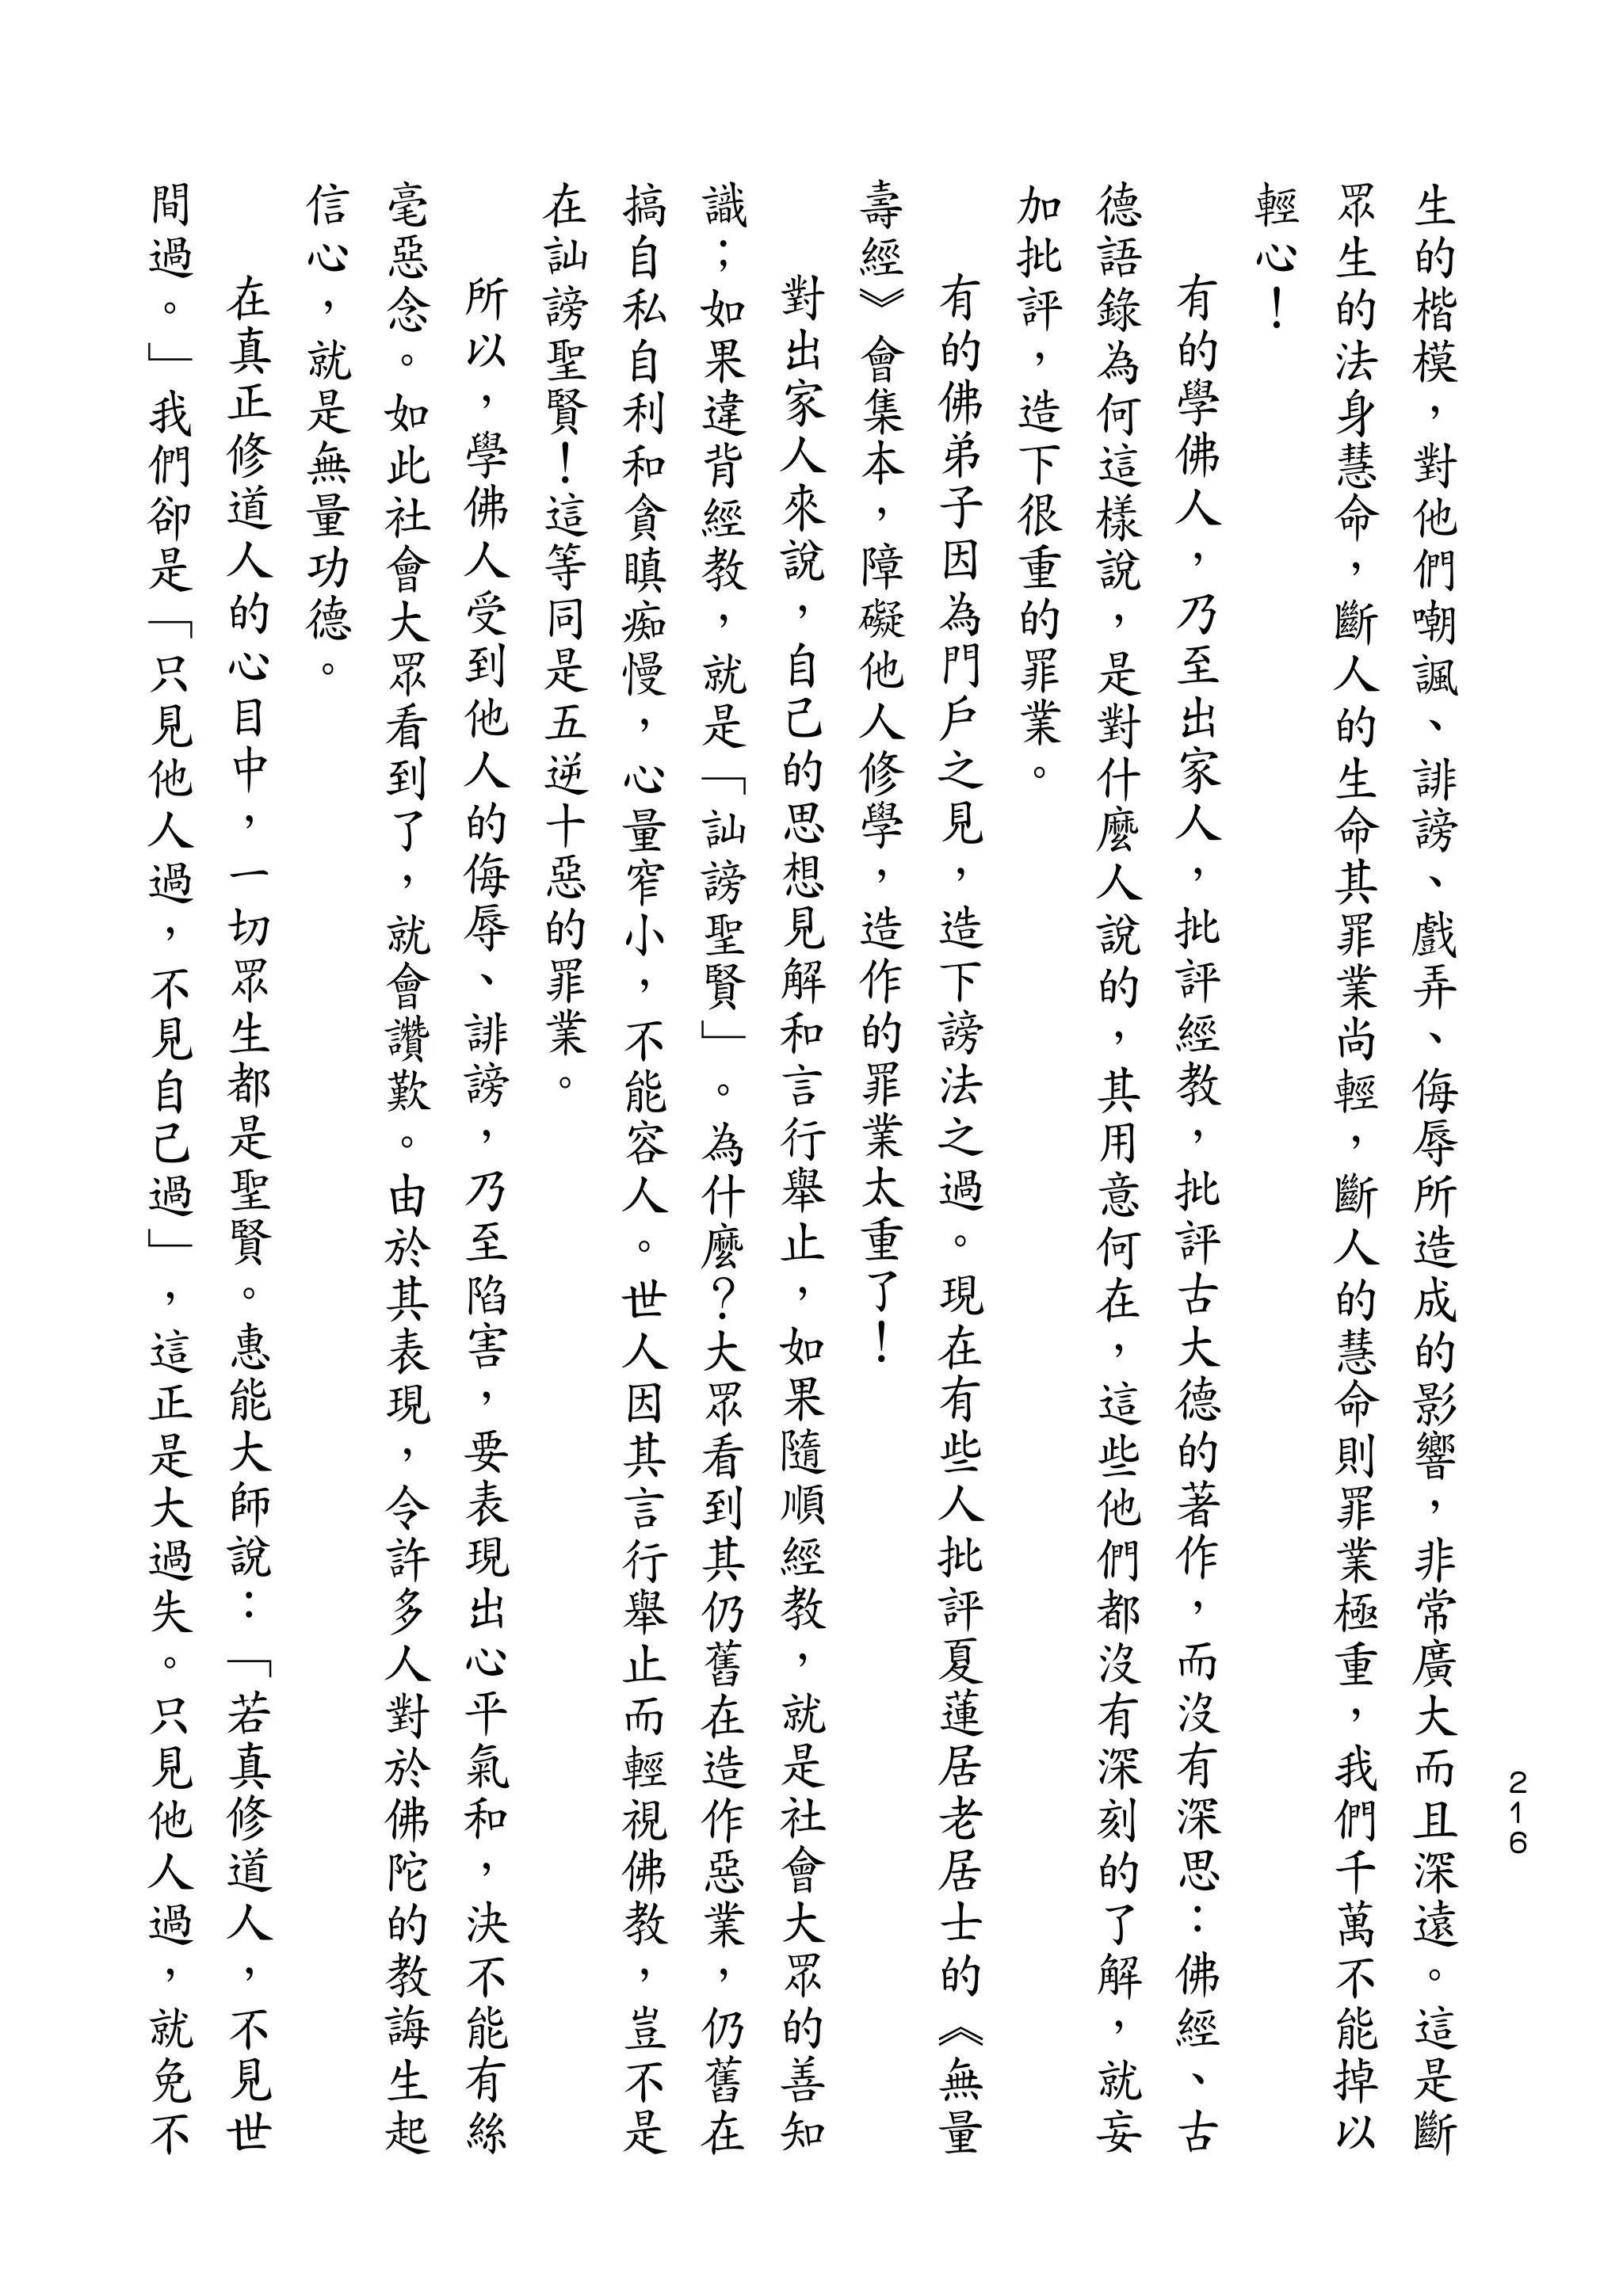 216
生的楷模，對他們嘲諷、誹謗、戲弄、侮辱所造成的影響，非常廣大而且深遠。這是斷
眾生的法身慧命，斷人的生命其罪業尚輕，斷人的慧命則罪業極重，我們千萬不能掉以
輕心！
有的學佛人，乃至出家人，批評經教，批評古大德的著作，而沒有深思：佛經、古
德語錄為何這樣說，是對什麼人說的，其用意何在，這些他們都沒有深刻的了解，就妄
加批評，造下很重的罪業。
有的佛弟子因為門戶之見，造下謗法之過。現在有些人批評夏蓮居老居士的《無量
壽經》會集本，障礙他人修學，造作的罪業太重了！
對出家人來說，自己的思想見解和言行舉止，如果隨順經教，就是社會大眾的善知
識；如果違背經教，就是「訕謗聖賢」。為什麼？大眾看到其仍舊在造作惡業，仍舊在
搞自私自利和貪瞋痴慢，心量窄小，不能容人。世人因其言行舉止而輕視佛教，豈不是
在訕謗聖賢！這等同是五逆十惡的罪業。
所以，學佛人受到他人的侮辱、誹謗，乃至陷害，要表現出心平氣和，決不能有絲
毫惡念。如此社會大眾看到了，就會讚歎。由於其表現，令許多人對於佛陀的教誨生起
信心，就是無量功德。
在真正修道人的心目中，一切眾生都是聖賢。惠能大師說：「若真修道人，不見世
間過。」我們卻是「只見他人過，不見自己過」，這正是大過失。只見他人過，就免不